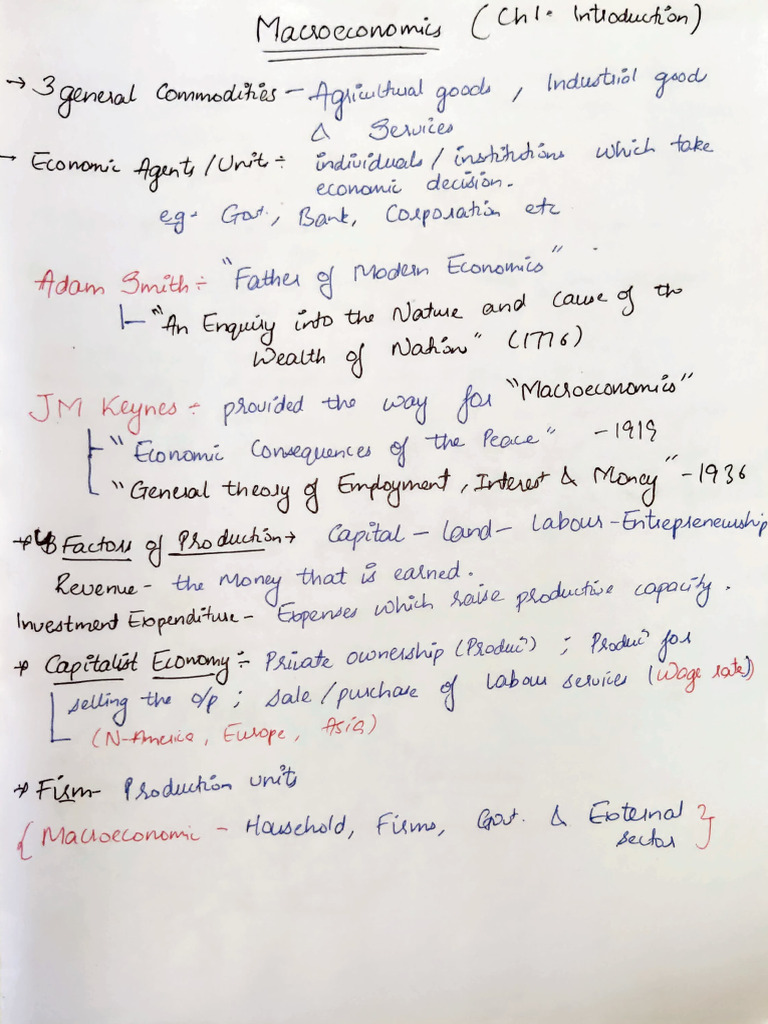 Macroeconomics (Ch1: Introduction)
→ 3 general Commodities - Agricultural goods, Industrial good
& Services
→ Economic Agents/Unit ÷ individuals/institutions which take
economic decision.
eg- Govt., Bank, Corporation etc
Adam Smith ÷ "Father of Modern Economics"
"An Enquiry into the Nature and Cause of the
Wealth of Nation" (1776)
JM Keynes ÷ provided the way for "Macroeconomics"
"Economic Consequences of the Peace" - 1919
"General theory of Employment, Interest & Money" - 1936
→ Factors of Production → Capital - Land - Labour - Entrepreneurship
Revenue - the money that is earned.
Investment Expenditure - Expenses which raise productive capacity.
→ Capitalist Economy ÷ Private ownership (Producn) ; Producn for
selling the o/p ; sale/purchase of labour services (wage rate)
(N-America, Europe, Asia)
→ Firm- Production units
{Macroeconomic - Household, Firms, Govt. & External
sector}